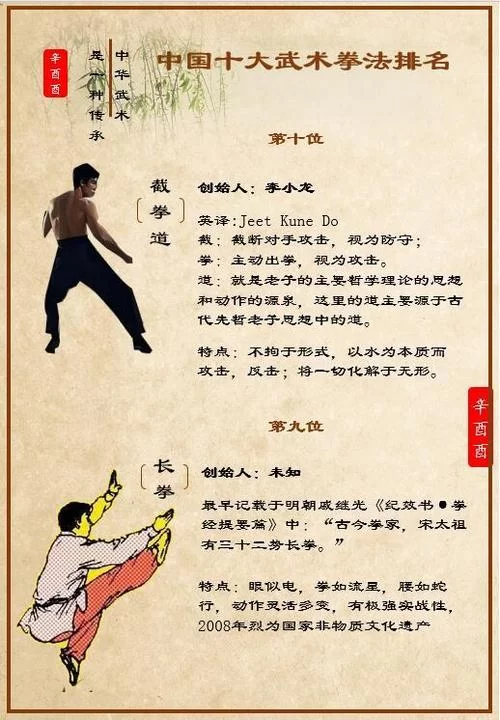 中国十大武术拳法排名
辛酉酉
中华武术
是一种传承
第十位
截拳道
创始人：李小龙
英译:Jeet Kune Do
截：截断对手攻击，视为防守；
拳：主动出拳，视为攻击。
道：就是老子的主要哲学理论的思想
和动作的源泉，这里的道主要源于古
代先哲老子思想中的道。
特点：不拘于形式，以水为本质而
攻击，反击；将一切化解于无形。
辛酉酉
第九位
长拳
创始人：未知
最早记载于明朝戚继光《纪效书●拳
经提要篇》中：“古今拳家，宋太祖
有三十二势长拳。”
特点：眼似电，拳如流星，腰如蛇
行，动作灵活多变，有极强实战性，
2008年烈为国家非物质文化遗产